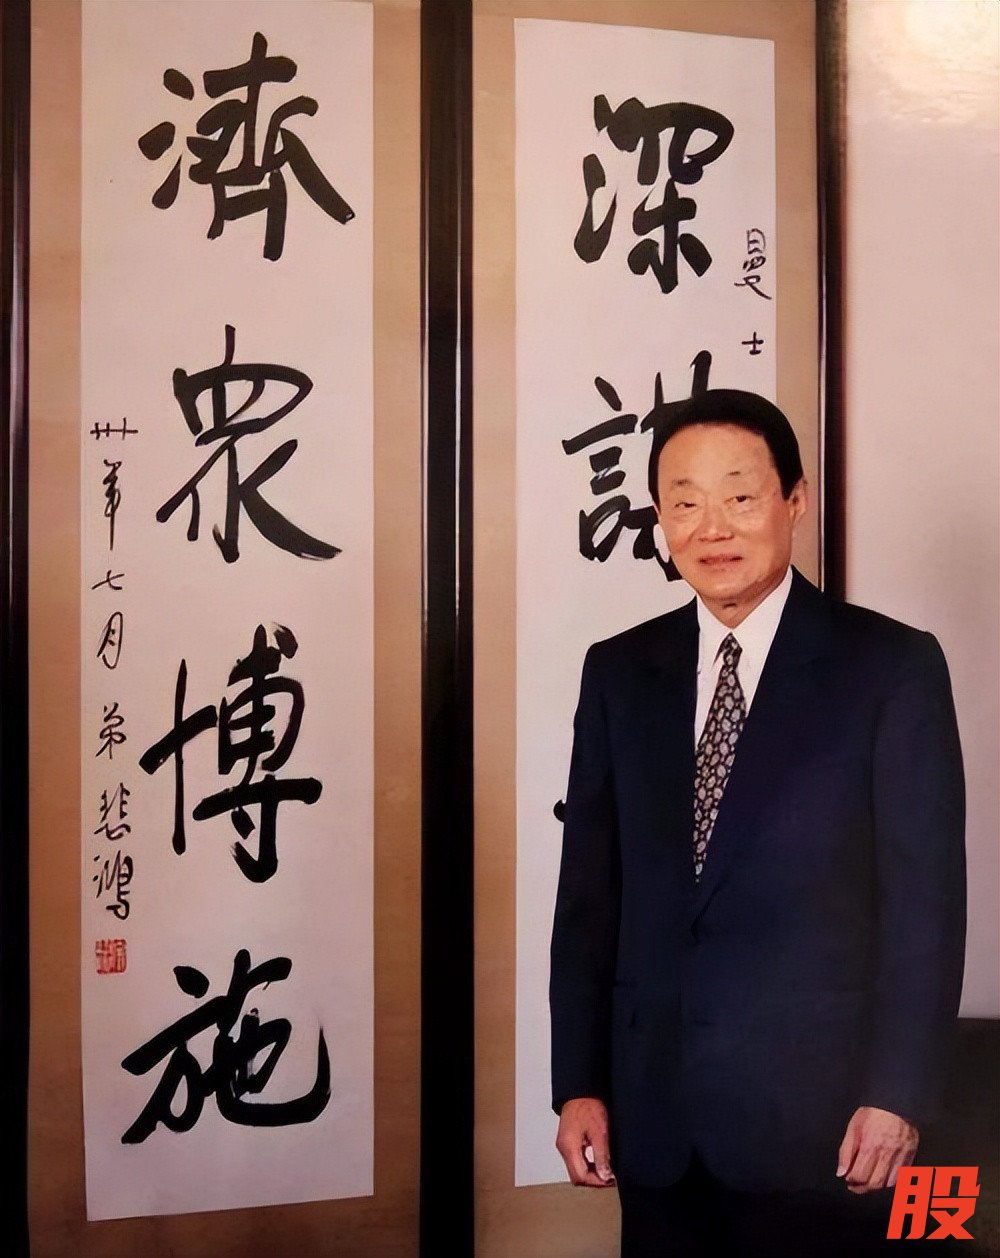 深謀
曼士
濟眾博施
卅年七月弟悲鴻
股